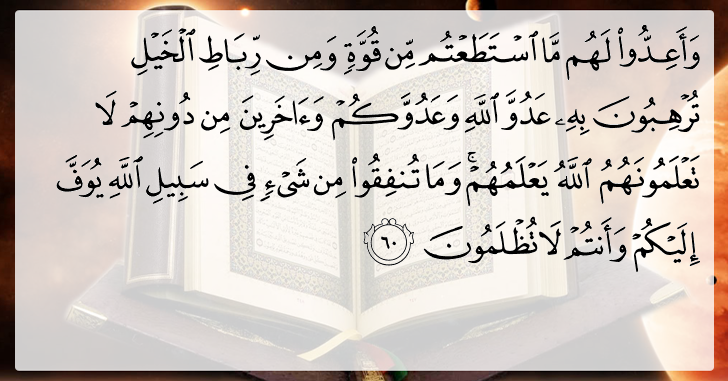 وَأَعِدُّوا۟ لَهُم مَّا ٱسْتَطَعْتُم مِّن قُوَّةٍ وَمِن رِّبَاطِ ٱلْخَيْلِ
تُرْهِبُونَ بِهِۦ عَدُوَّ ٱللَّهِ وَعَدُوَّكُمْ وَءَاخَرِينَ مِن دُونِهِمْ لَا
تَعْلَمُونَهُمُ ٱللَّهُ يَعْلَمُهُمْ ۚ وَمَا تُنفِقُوا۟ مِن شَىْءٍ فِى سَبِيلِ ٱللَّهِ يُوَفَّ
إِلَيْكُمْ وَأَنتُمْ لَا تُظْلَمُونَ ٦٠